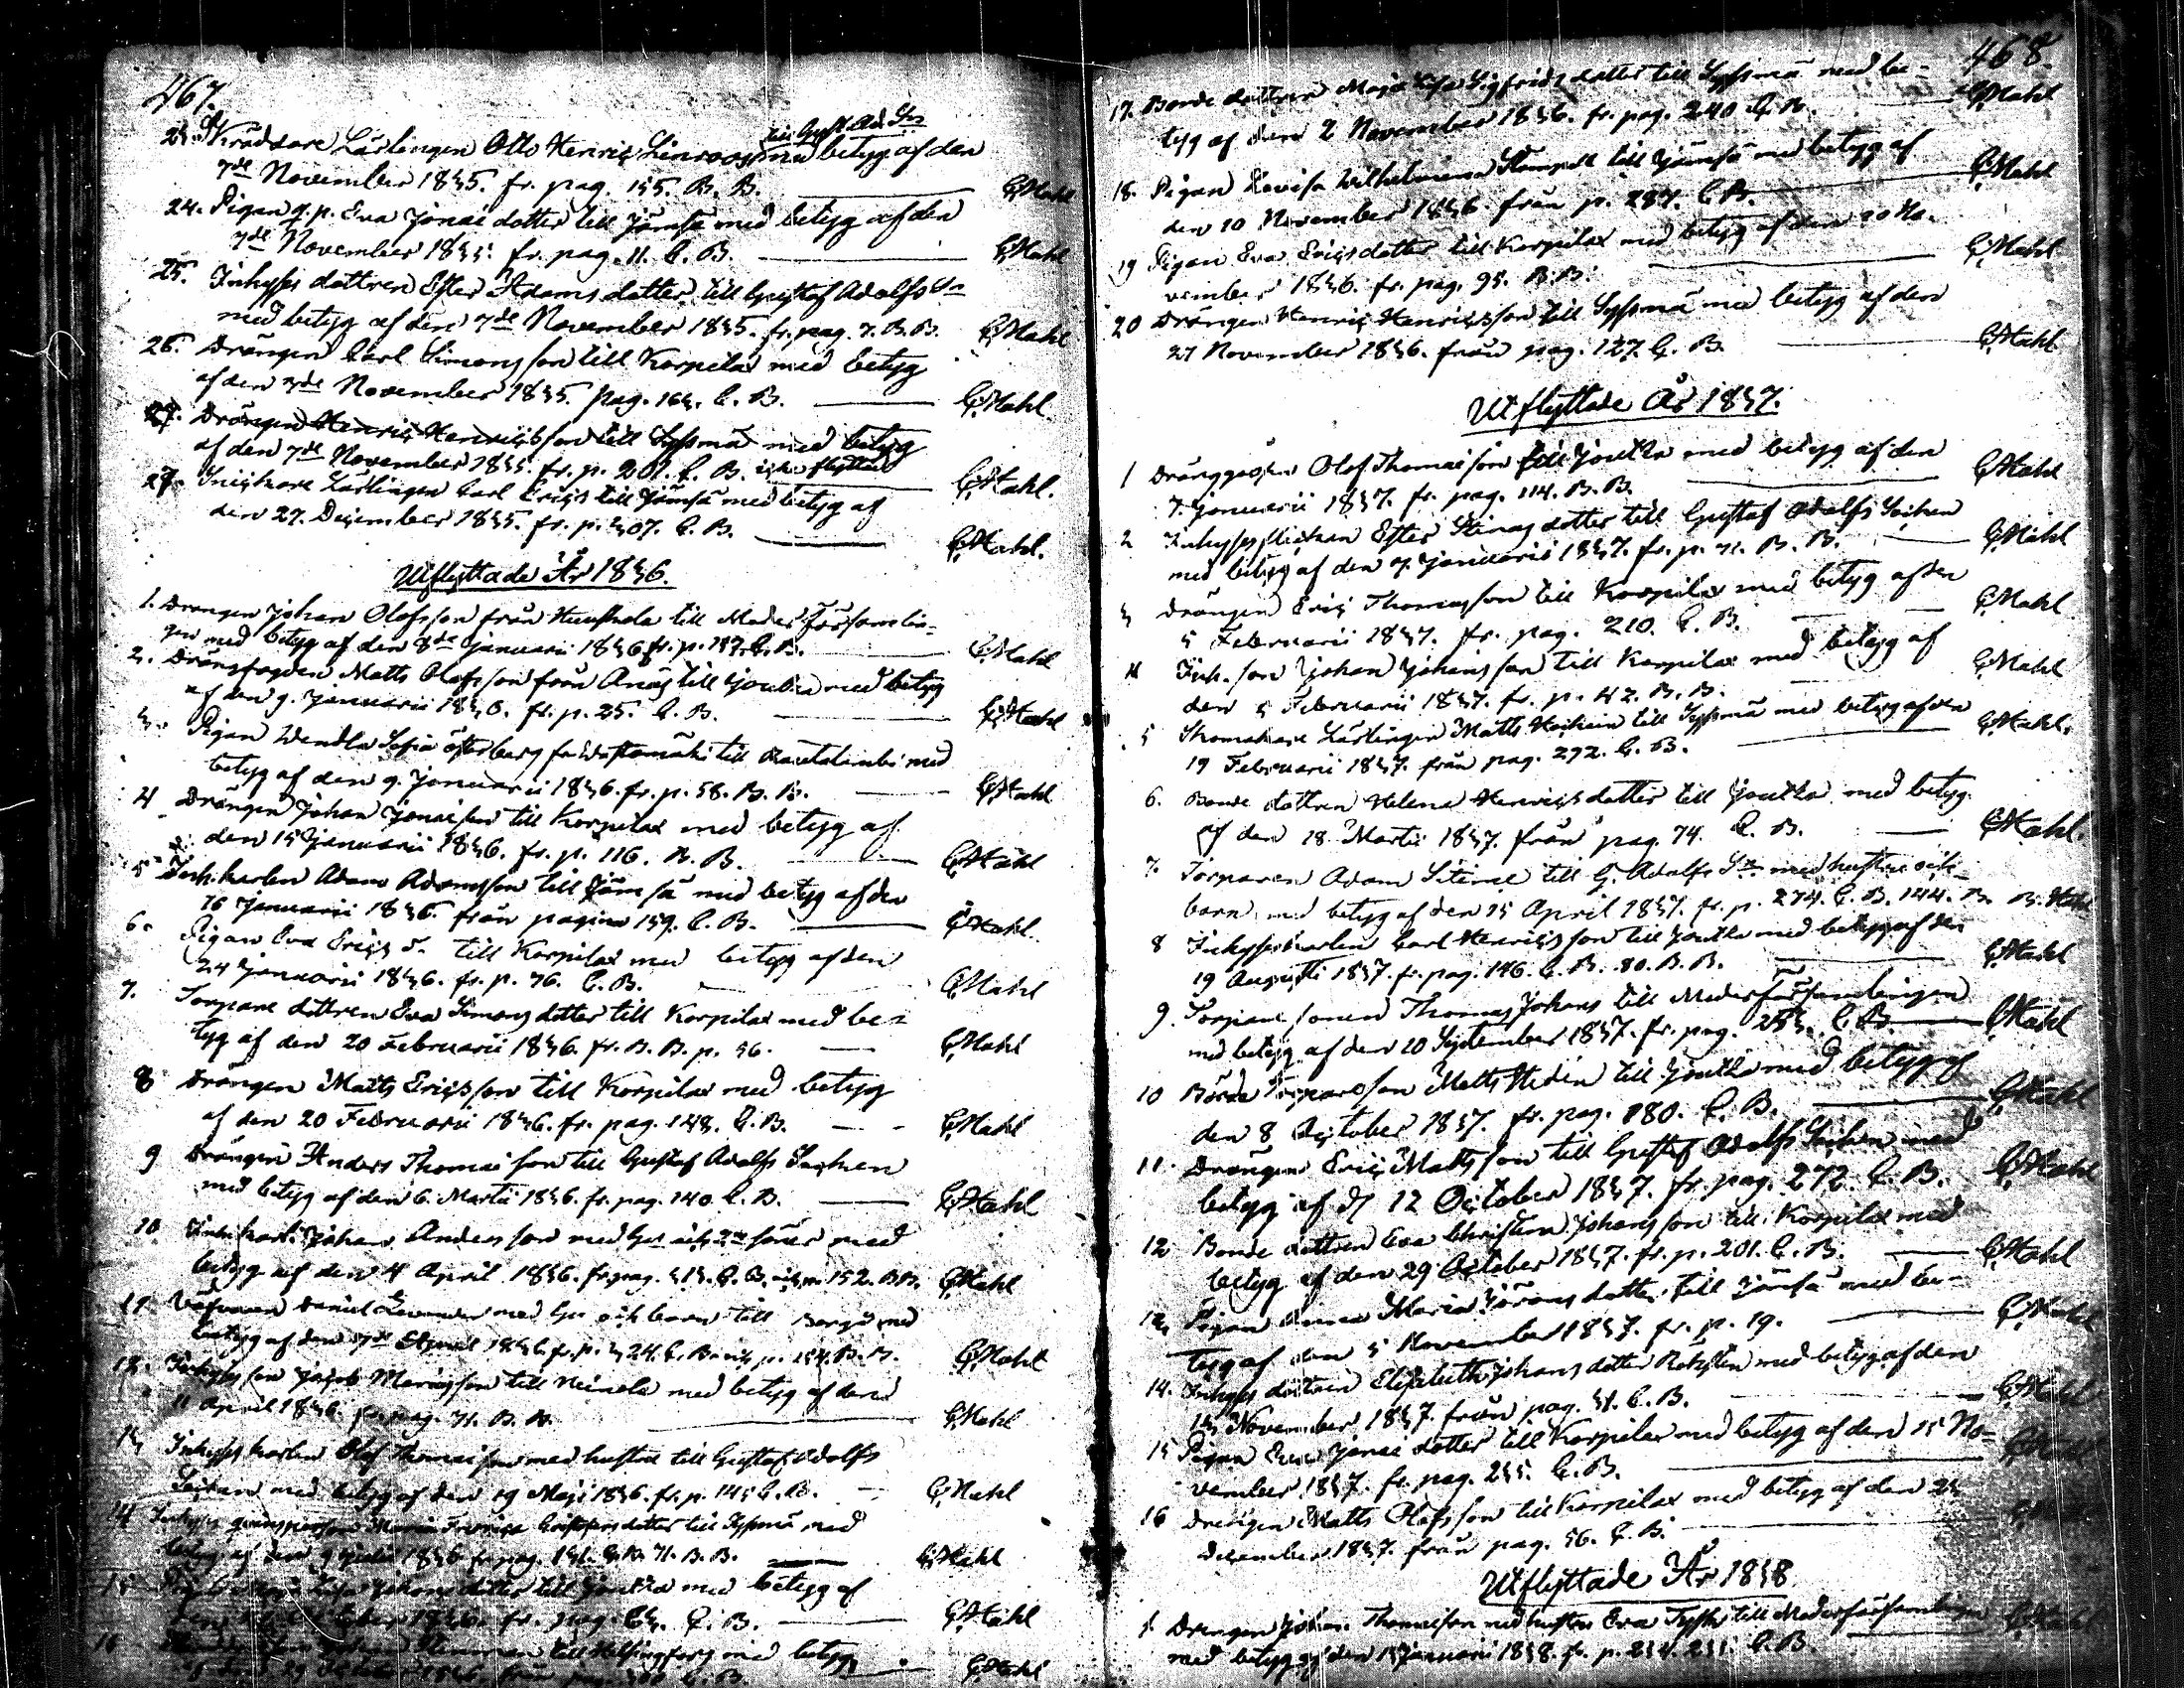 467.
till Gust. Ad. Sn
23. Skräddare Lärlingen Otto Henric Linroos med betyg af den
7de November 1835. fr. pag. 155. B. B. G Stahl
24. Pigan g. p. Eva Jonaedotter till Jämsä med betyg af den
7de November 1835. fr. pag. 11. C. B. G Stahl
25. Inhyses dottren Ester Adamsdotter till Gustaf Adolfs Sn
med betyg af den 7de November 1835. fr. pag. 7. B. B. G Stahl
26. Drängen Carl Simonsson till Korpilax med betyg
af den 7de November 1835. pag. 163. C. B. G Stahl.
27. Drängen Henric Henricsson till Sysmä med betyg
af den 7de November 1835. fr. p. 201. C. B. icke flyttad G Stahl.
27. Snickare Lärlingen Carl Ericss till Jämsä med betyg af
den 27. December 1835. fr. p. 307. C. B. G Stahl.
Utflyttade År 1836.
1. Drängen Johan Olofsson från till Moderförsamlin-
gen med betyg af den 8de Januarii 1836 fr. p. 137. C. B. G Stahl
2. Drängfogden Matts Olofsson från till Joutsa med betyg
af den 9. Januarii 1836. fr. p. 25. C. B. G Stahl
3. Pigan Wendla Sofia Österberg fr. till Rautalambi med
betyg af den 9. Januarii 1836. fr. p. 58. B. B. G Stahl
4 Drängen Johan Jonaeson till Korpilax med betyg af
den 15 Januarii 1836. fr. p. 116. B. B. G Stahl
5 Inh. karlen Adam Adamsson till Jämsä med betyg af den
16 Januarii 1836. från pagina 159. C. B. G Stahl.
6. Pigan Eva Erics d. till Korpilax med betyg af den
24 Januarii 1836. fr. p. 76. C. B. G Stahl
7. Torpare dottren Eva Simonsdotter till Korpilax med be-
tyg af den 20 Februarii 1836. fr. B. B. p. 56. G Stahl
8 Drängen Matts Ericsson till Korpilax med betyg
af den 20 Februarii 1836. fr. pag. 148. C. B. G Stahl
9 Drängen Anders Thomaeson till Gustaf Adolfs Socken
med betyg af den 6. Martii 1836. fr. pag. 140. C. B. G Stahl
10. Inh. karl. Johan Andersson med hu och 2ne söner med
betyg af den 4 April 1836. fr. pag. 313. C. B. och p. 152. BB. G Stahl
11. Daniel med hu och barn till Borgå med
betyg af den 7de April 1836 fr. p. 324. C. B. och p. 154. B. B. G Stahl
12. Inhyses son Jacob Mariæson till Heinola med betyg af den
11 April 1836. fr. pag. 71. B. B. G Stahl
13 Inhyses karlen Olof Thomaeson med hustru till Gustaf Adolfs
Socken med betyg af den 19 Maji 1836. fr. p. 145 C. B. G Stahl
14 Inhyses qvinsperson Maria Fredrica dotter till Sysmä med
betyg af den 9 Julii 1836 fr. pag. 131. C. B. 71. B. B. G Stahl
15 Lisa Johansdotter till Joutsa med betyg af
October 1836. fr. pag. 63. C. B. G Stahl
16 till Helsingfors med betyg
af den 29 October 1836. från pag. C. B. G Stahl
468.
17. Bonde dottren Maja Lisa Sigfridsdotter till Sysmä med be-
tyg af den 2 November 1836. fr. pag. 240 C. B. G Stahl
18. Pigan Lovisa Wilhelmina Stampell till Jämsä med betyg af
den 10 November 1836. från p. 287. C. B. G Stahl
19 Pigan Eva Ericsdotter till Korpilax med betyg af den 20 No-
vember 1836. fr. pag. 95. B. B. G Stahl
20 Drängen Henric Henricsson till Sysmä med betyg af den
27 November 1836. från pag. 127. C. B. G Stahl
Utflyttade År 1837.
1 Olof Thomaeson till Joutsa med betyg af den
7. Januarii 1837. fr. pag. 114. B. B. G Stahl
2 Inhyses flickan Ester Stinasdotter till Gustaf Adolfs Socken
med betyg af den 7. Januarii 1837. fr. p. 71. B. B. G Stahl
3 Drängen Eric Thomasson till Korpilax med betyg af den
5 Februarii 1837. fr. pag. 210. C. B. G Stahl
4 Inh. son Johan Johansson till Korpilax med betyg af
den 5 Februarii 1837. fr. p. 42. B. B. G Stahl
5 Skomakare Lärlingen Matts till Sysmä med betyg af den
19 Februarii 1837. från pag. 272. C. B. G Stahl.
6. Bonde dottren Helena Henricsdotter till Joutsa med betyg
af den 18 Martii 1837. från pag. 74. C. B. G Stahl.
7. Torparen Adam till G. Adolfs Sn med hustru och
barn med betyg af den 15 April 1837. fr. p. 274. C. B. 144. B. B. Stahl
8 Inhyseskarlen Carl Henricsson till Joutsa med betyg af den
19 Augusti 1837. fr. pag. 146. C. B. 80. B. B. G Stahl
9. Torpare sonen Thomas Johans till Moderförsamlingen
med betyg af den 10 September 1837. fr. pag. 253. C. B. G Stahl
10 Torpareson Matts Hedén till Joutsa med betyg af
den 8 October 1837. fr. pag. 180. C. B. G Stahl
11. Drängen Eric Mattsson till Gustaf Adolfs Socken med
betyg af d 12 October 1837. fr. pag. 272. C. B. G Stahl
12 Bonde dottren Eva Christina Johansson till Korpilax med
betyg af den 29 October 1837. fr. p. 201. C. B. G Stahl
13 Pigan Anna Maria Göransdotter till Jämsä med be-
tyg af den 5 November 1837. fr. p. 19. G Stahl
14. Inhyses dottren Elisabeth Johansdotter med betyg af den
13 November 1837 från pag. 31. C. B. G Stahl
15 Pigan Eva Jonaedotter till Korpilax med betyg af den 15 No-
vember 1837. fr. pag. 235. C. B. G Stahl
16 Drängen Matts Olofsson till Korpilax med betyg af den 23
December 1837. från pag. 56. C. B.
Utflyttade År 1838
1. Drängen Johan Thomaeson med hustru Eva till Moderförsamlingen
med betyg af den 15 Januarii 1838. fr. p. 234. 231. C. B. G Stahl